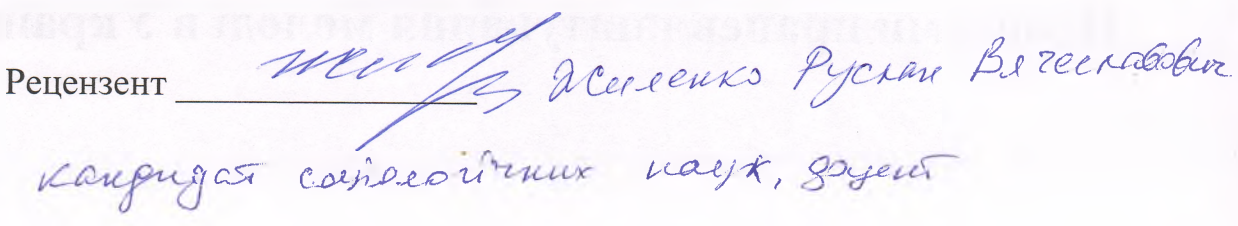 Рецензент Жиленко Руслан Вячеславович
кандидат соціологічних наук, доцент